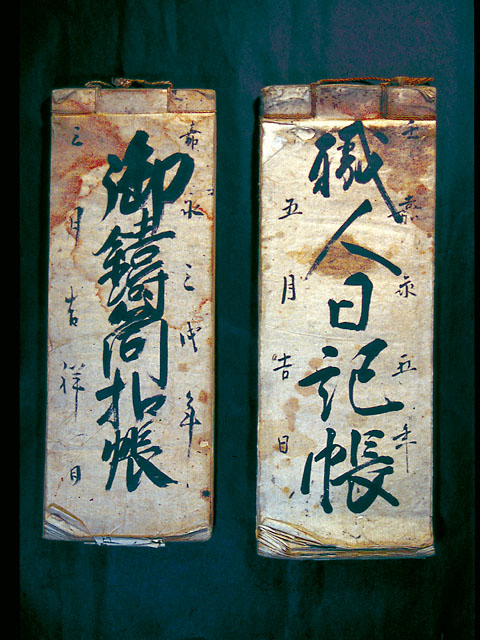 壬嘉永五年
職人日記帳
五月吉日
嘉永三戌年
御鑄筒扣帳
三月吉祥日